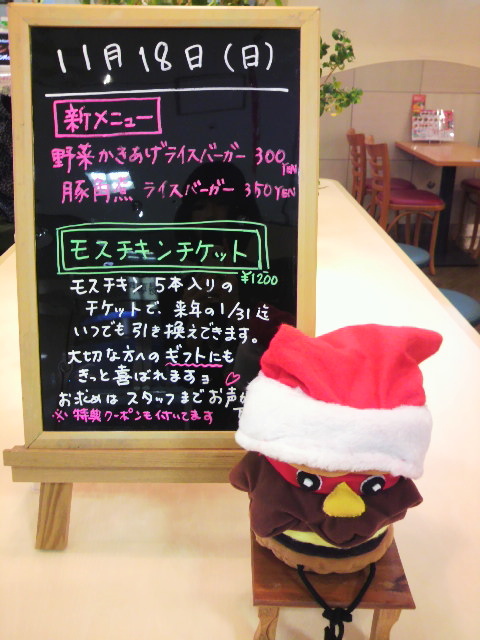 11月18日(日)
新メニュー
野菜かきあげライスバーガー 300YEN
豚角煮 ライスバーガー 350YEN
モスチキンチケット
¥1200
モスチキン 5本入りの
チケットで、来年の1/31迄
いつでも引き換えできます。
大切な方へのギフトにも
きっと喜ばれますョ♡
お求めは スタッフまでお声が
※特製クーポンも付いてます